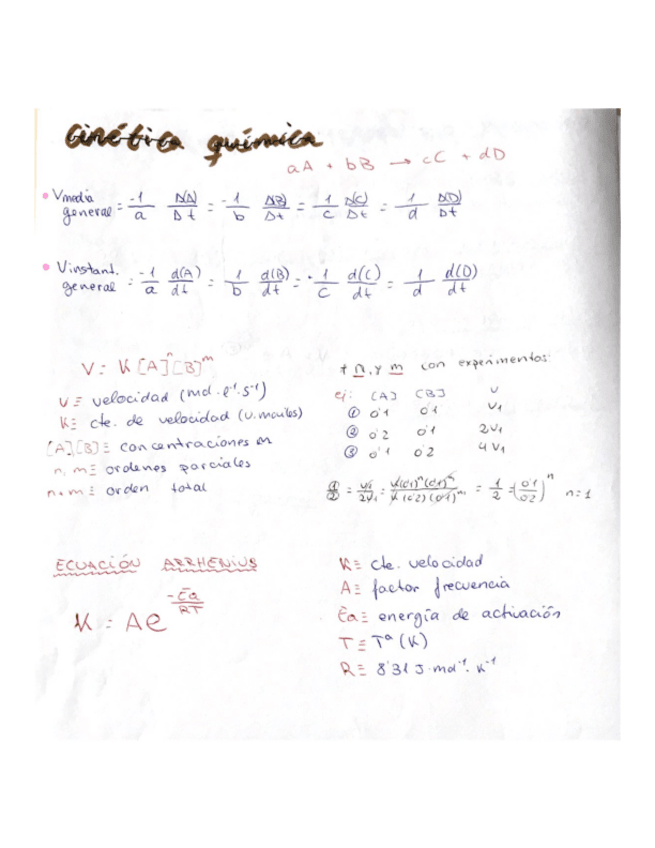 cinética química
aA + bB → cC + dD
• Vmedia general = -1/a Δ(A)/Δt = -1/b Δ(B)/Δt = 1/c Δ(C)/Δt = 1/d Δ(D)/Δt
• Vinstant. general = -1/a d(A)/dt = 1/b d(B)/dt = -1/c d(C)/dt = 1/d d(D)/dt
V = K [A]ⁿ[B]ᵐ
V ≡ velocidad (mol·l⁻¹·s⁻¹)
K ≡ cte. de velocidad (u.
[A][B] ≡ concentraciones M
n, m ≡ ordenes parciales
n+m ≡ orden total
* n, y m con experimentos:
ej: [A] [B] V
① 0'1 0'1 V₁
② 0'2 0'1 2V₁
③ 0'1 0'2 4V₁
1/2 = V₁/2V₁ = K(0'1)ⁿ(0'1)ᵐ/K(0'2)ⁿ(0'1)ᵐ = 1/2 = (0'1/0'2)ⁿ n=1
ECUACIÓN ARRHENIUS
K = Ae^(-Ea/RT)
K ≡ cte. velocidad
A ≡ factor frecuencia
Ea ≡ energía de activación
T ≡ Tª (K)
R ≡ 8'31 J·mol⁻¹·K⁻¹